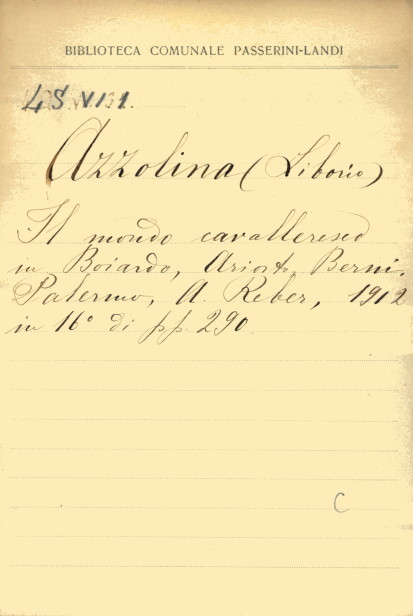 BIBLIOTECA COMUNALE PASSERINI-LANDI
4S VI 1.
Azzolina (Liborio)
Il mondo cavalleresco
in Boiardo, Ariosto, Berni.
Palermo, A. Reber, 1912
in 16° di pp. 290.
C